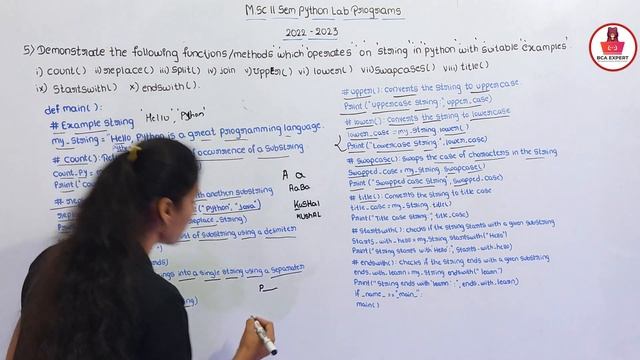 M.Sc II Sem Python Lab Programs
2022 - 2023
5) Demonstrate the following functions/methods which operates on string in python with suitable examples
i) count() ii) replace() iii) split() iv) join v) upper() vi) lower() vii) swapcases() viii) title()
ix) startswith() x) endswith().
def main():
# Example string Hello, "Python"
my_string = "Hello, Python is a great programming language.
# count(): occurrence of a substring
count_py = m
Print("co
with another substring
("Python", "Java")
replace_string)
list of substring using a delimiter
ngs into a single string using a separater
ing)
A a
AaBa
KUSHAl
kUSHAL
P
# upper(): converts the string to uppercase
Print("uppercase string:", upper_case)
# lower(): converts the string to lowercase
lower_case = my_string.lower()
Print("Lowercase string", lower_case)
# swapcase(): swaps the case of characters in the string
Swapped_case = my_string.swapcase()
Print("Swapped case string", swapped_case)
# title(): converts the string to title case
title_case = my_string.title()
Print("String title case:", title_case)
# startswith(): checks if the string starts with a given substring
Starts_with_hello = my_string.startswith("Hello")
Print("String starts with Hello:", starts_with_hello)
# endswith(): checks if the string ends with a given substring
ends_with_learn = my_string.endswith("learn")
Print("String ends with 'learn':", ends_with_learn)
If _name_ == "main_":
main()
BCA EXPERT